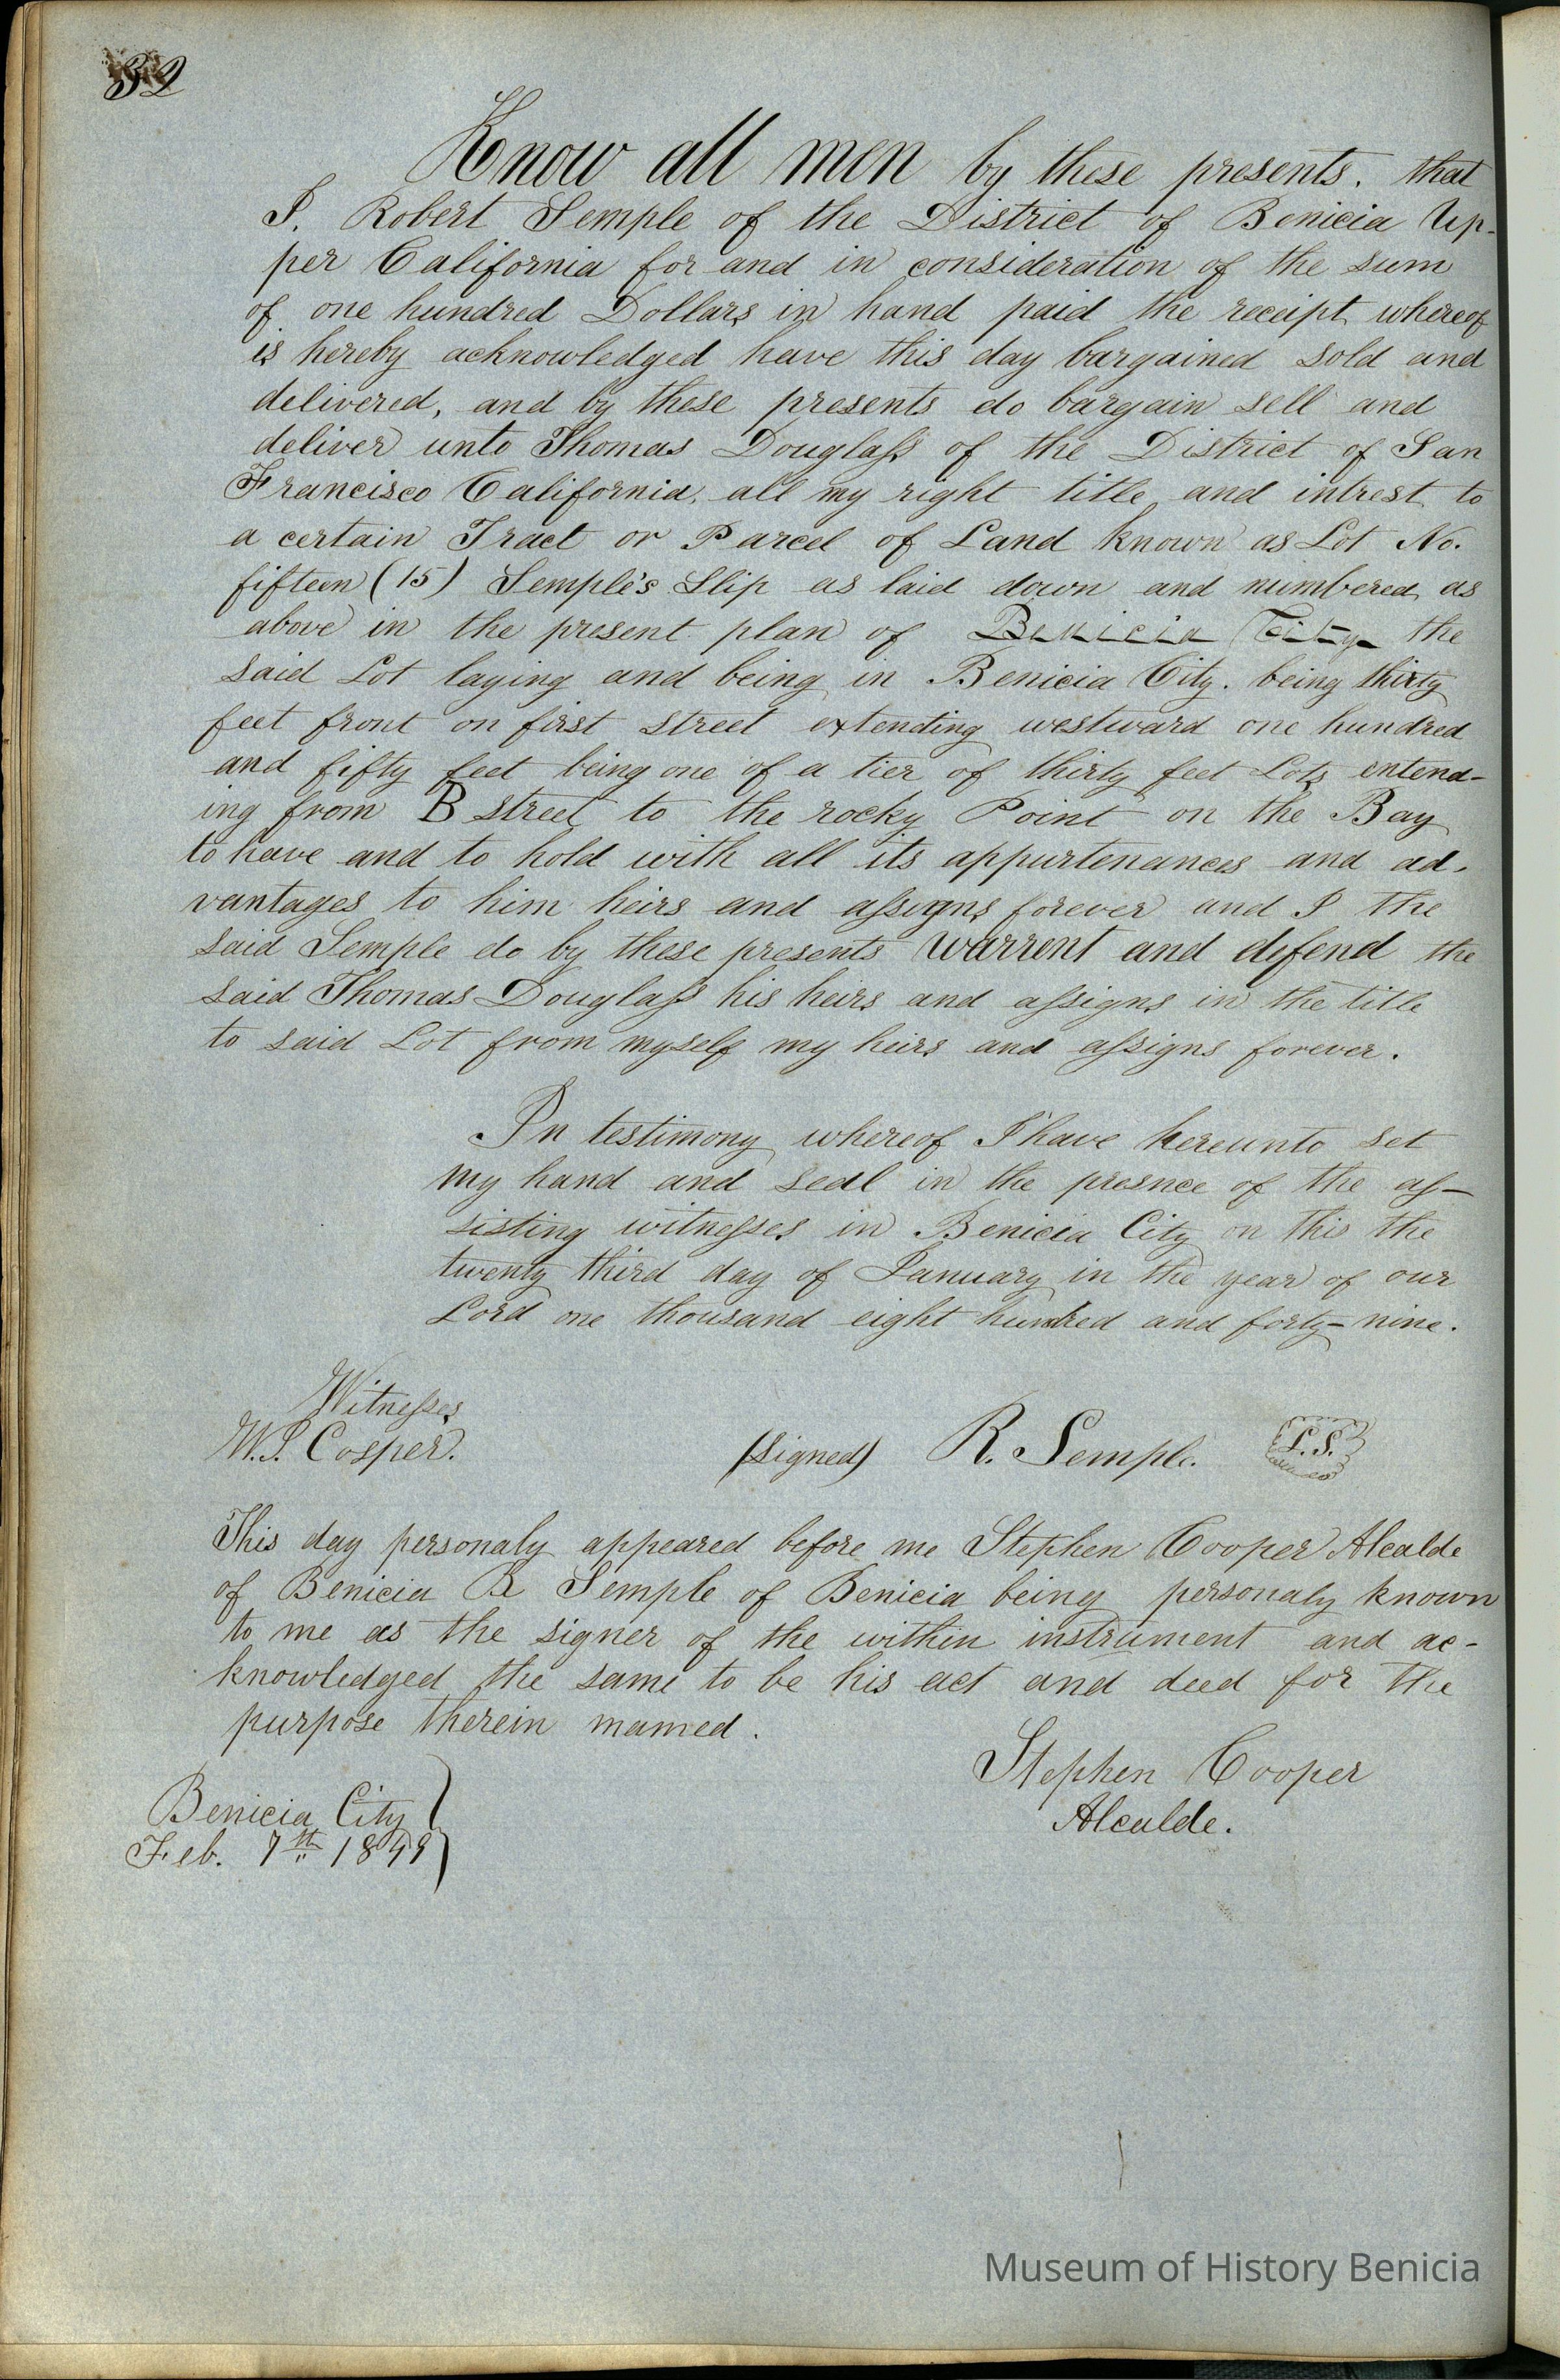 32
Know all men by these presents. that
I. Robert Semple of the District of Benicia Up-
per California for and in consideration of the sum
of one hundred Dollars in hand paid the receipt whereof
is hereby acknowledged have this day bargained sold and
delivered, and by these presents do bargain sell and
deliver unto Thomas Douglass of the District of San
Francisco California, all my right title and intrest to
a certain Tract or Parcel of Land known as Lot No.
fifteen (15) Semple's Slip as laid down and numbered as
above in the present plan of Benicia City the
said Lot laying and being in Benicia City. being thirty
feet front on first street extending westward one hundred
and fifty feet being one of a tier of thirty feet Lots entend-
ing from B street to the rocky Point on the Bay
to have and to hold with all its appurtenances and ad-
vantages to him heirs and assigns forever and I the
said Semple do by these presents warrent and defend the
said Thomas Douglass his heirs and assigns in the title
to said Lot from myself my heirs and assigns forever.
In testimony whereof I have hereunto set
my hand and seal in the presnce of the as-
sisting witnesses in Benicia City on this the
twenty third day of January in the year of our
Lord one thousand eight hundred and forty-nine.
Witnesses
W.S. Cosper.
(signed) R. Semple. L.S.
This day personaly appeared before me Stephen Cooper Alcalde
of Benicia R Semple of Benicia being personaly known
to me as the signer of the within instrument and ac-
knowledged the same to be his act and deed for the
purpose therein mamed.
Stephen Cooper
Alcalde.
Benicia City
Feb. 7th 1849
Museum of History Benicia